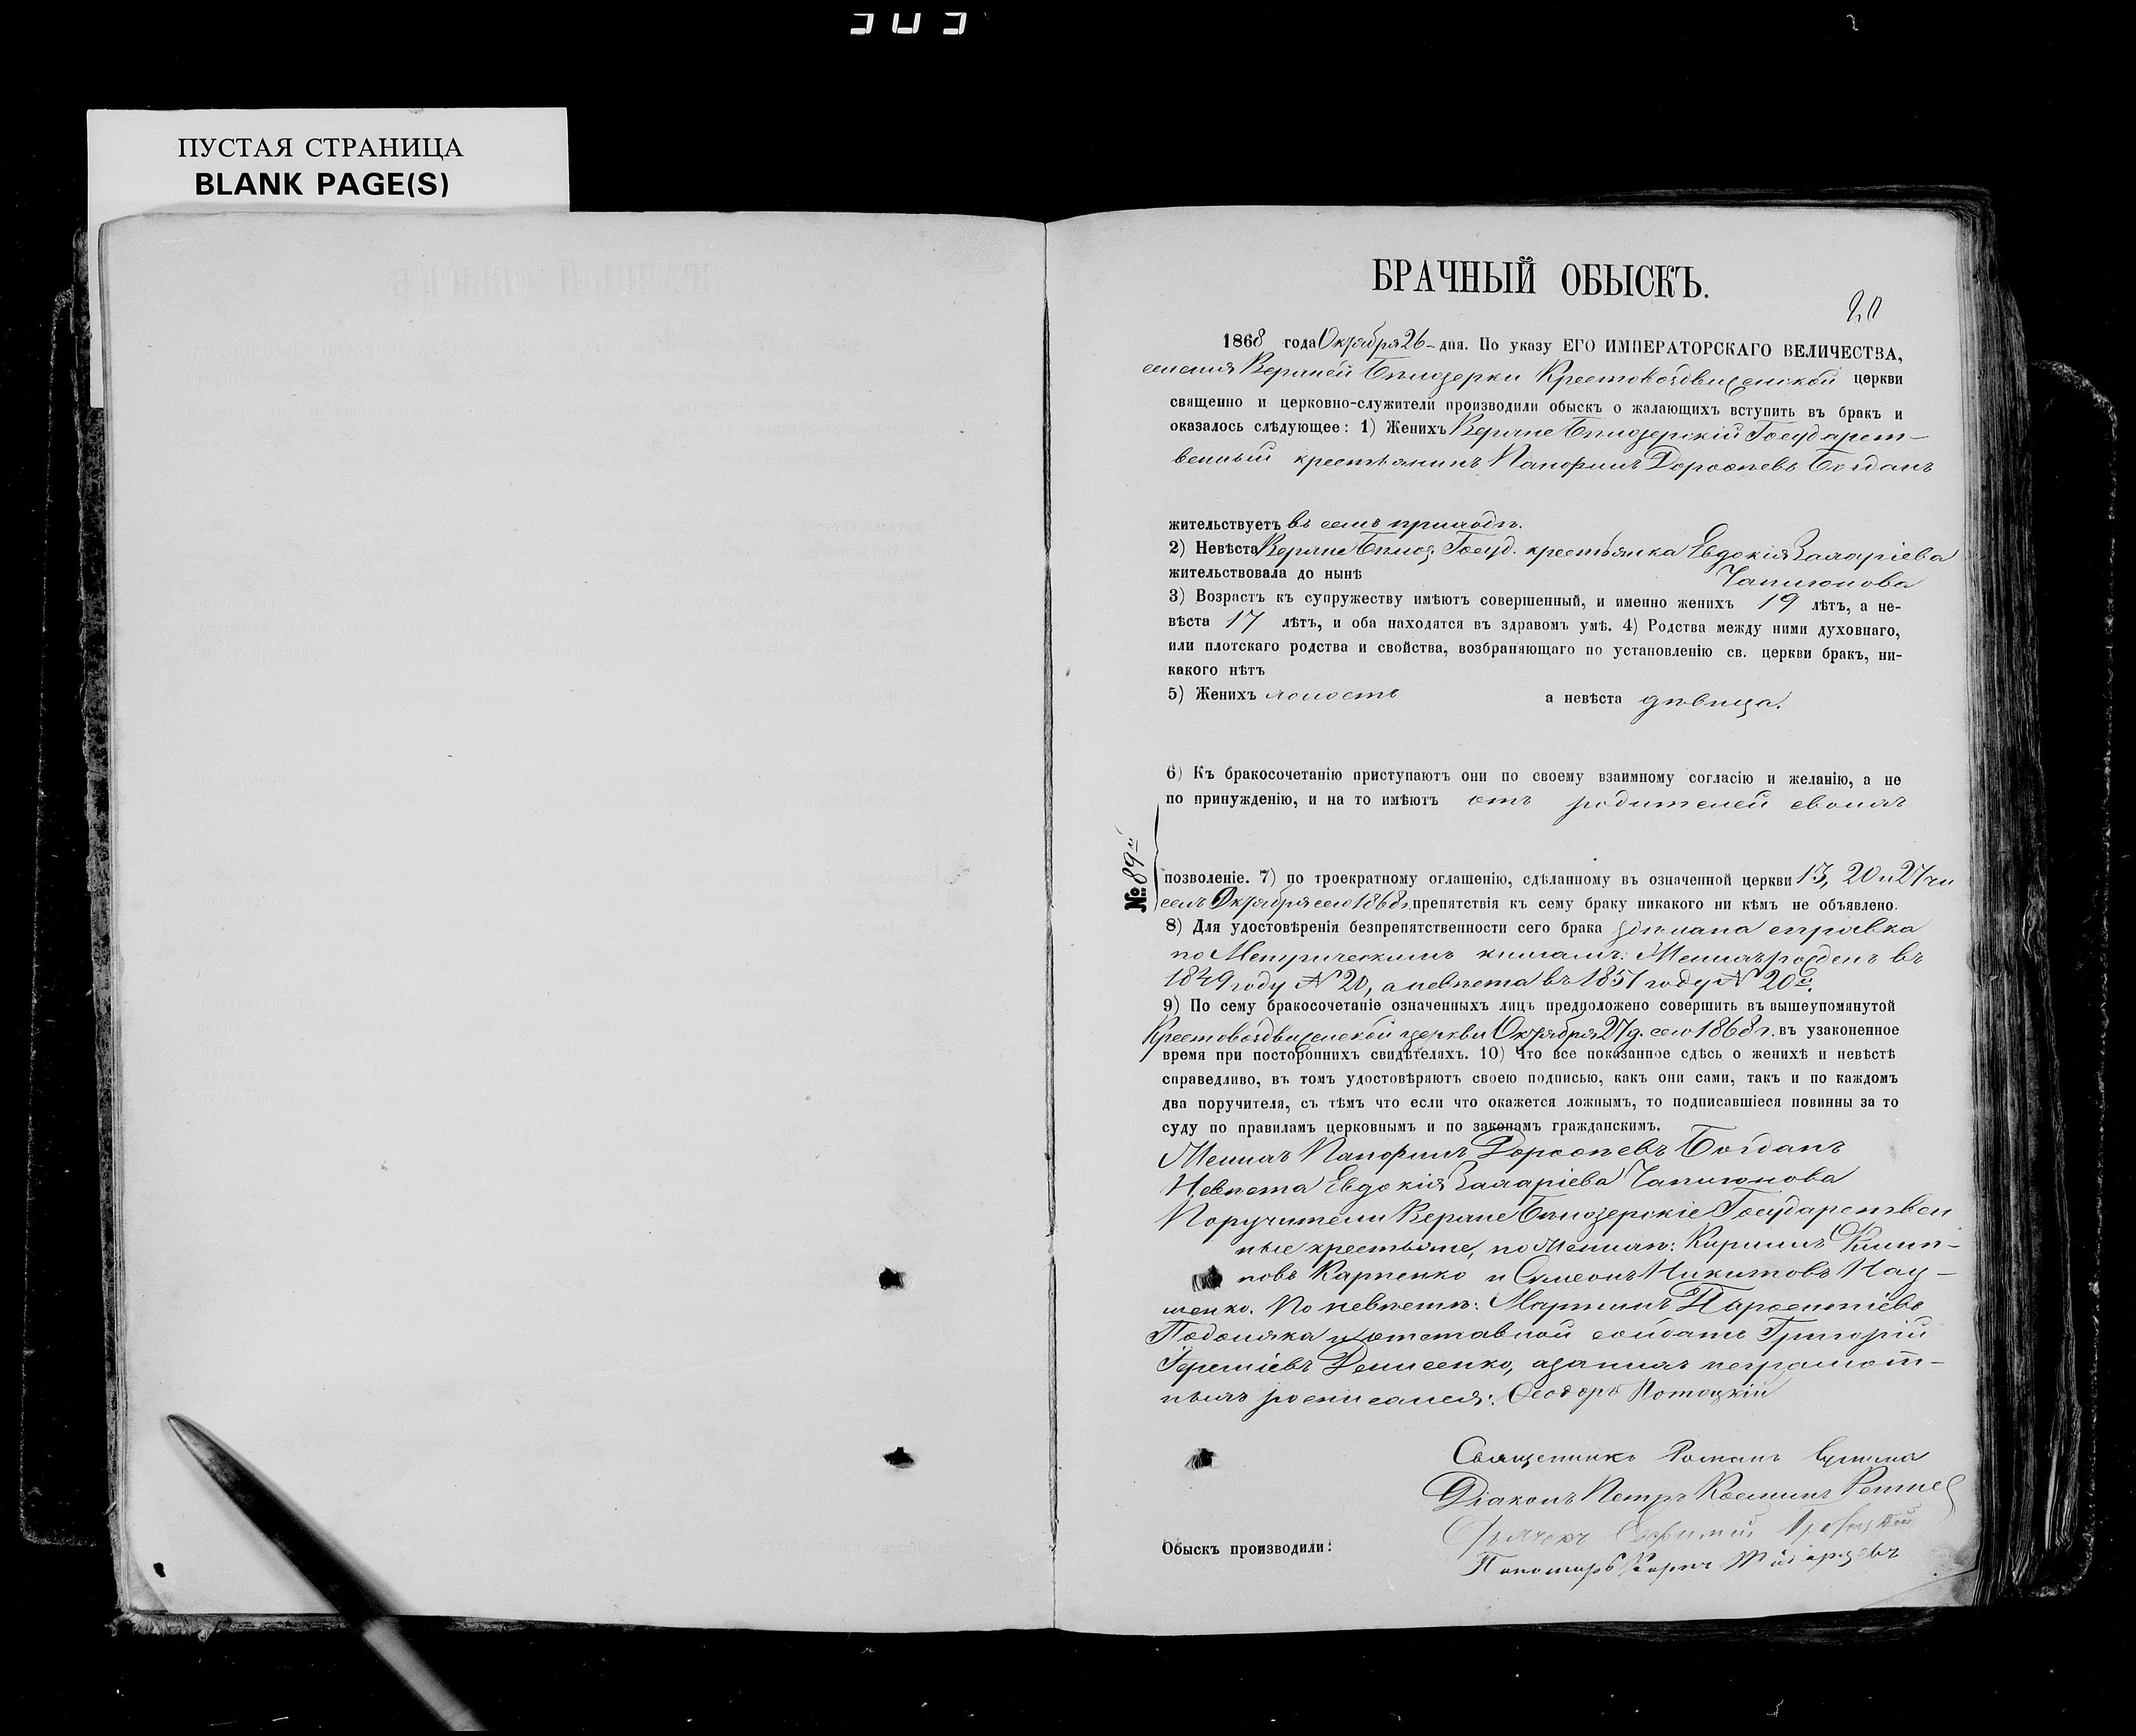 ПУСТАЯ СТРАНИЦА
BLANK PAGE(S)
БРАЧНЫЙ ОБЫСКЪ.
1868 года Октября 26 – дня. По указу ЕГО ИМПЕРАТОРСКАГО ВЕЛИЧЕСТВА,
селенія Верхней Бѣлозерки Крестовоздвиженской церкви
священно и церковно-служители производили обыскъ о жалающихъ вступить въ бракъ и
оказалось слѣдующее: 1) Женихъ Верхне Бѣлозерскій Государст–
венный крестьянинъ Панфилъ Дороѳеевъ Богданъ
жительствуетъ въ семъ приходѣ.
2) Невѣста Верхне Бѣлоз. Госуд. крестьянка Евдокія Захаріева
жительствовала до нынѣ
3) Возрастъ къ супружеству имѣютъ совершенный, и именно женихъ 19 лѣтъ, а не-
вѣста 17 лѣтъ, и оба находятся въ здравомъ умѣ. 4) Родства между ними духовнаго,
или плотскаго родства и свойства, возбраняющаго по установленію св. церкви бракъ, ни-
какого нѣтъ
5) Женихъ холостъ а невѣста дѣвица.
6) Къ бракосочетанію приступаютъ они по своему взаимному согласію и желанію, а не
по принужденію, и на то имѣютъ отъ родителей своихъ
№ 89й
позволеніе. 7) по троекратному оглашенію, сдѣланному въ означенной церкви 13, 20 и 27 чи
селъ Октября сего 1868 г. препятствія къ сему браку никакого ни кѣмъ не объявлено.
8) Для удостовѣренія безпрепятственности сего брака здѣлана справка
по Метрическимъ книгамъ: Женихъ рожденъ въ
1849 году № 20, а невѣста въ 1851 году № 20й.
9) По сему бракосочетаніе означенныхъ лицъ предположено совершить въ вышеупомянутой
Крестовоздвиженской церкви Октября 27 д. сего 1868 г. въ узаконенное
время при постороннихъ свидѣтеляхъ. 10) Что все показанное сдѣсь о женихѣ и невѣстѣ
справедливо, въ томъ удостовѣряютъ своею подписью, какъ они сами, такъ и по каждомъ
два поручителя, съ тѣмъ что если что окажется ложнымъ, то подписавшіеся повинны за то
суду по правиламъ церковнымъ и по законамъ гражданскимъ.
Женихъ Панфилъ Дороѳеевъ Богданъ
Невѣста Евдокія Захаріева
Поручители Верхне Бѣлозерскіе Государствен
ные крестьяне, по Женихѣ: Кирилъ Филип–
повъ Карпенко и Симеонъ Никитовъ Нау–
менко. По невѣстѣ: Мартинъ Парѳентіевъ
Подоляка и отставной солдатъ Григорій
Іереміевъ Денисенко, а за нихъ неграмот–
ныхъ росписался: Ѳеодоръ Потоцкій
Священникъ Романъ
Діаконъ Петръ Косминъ
Обыскъ производили:
Пономарь